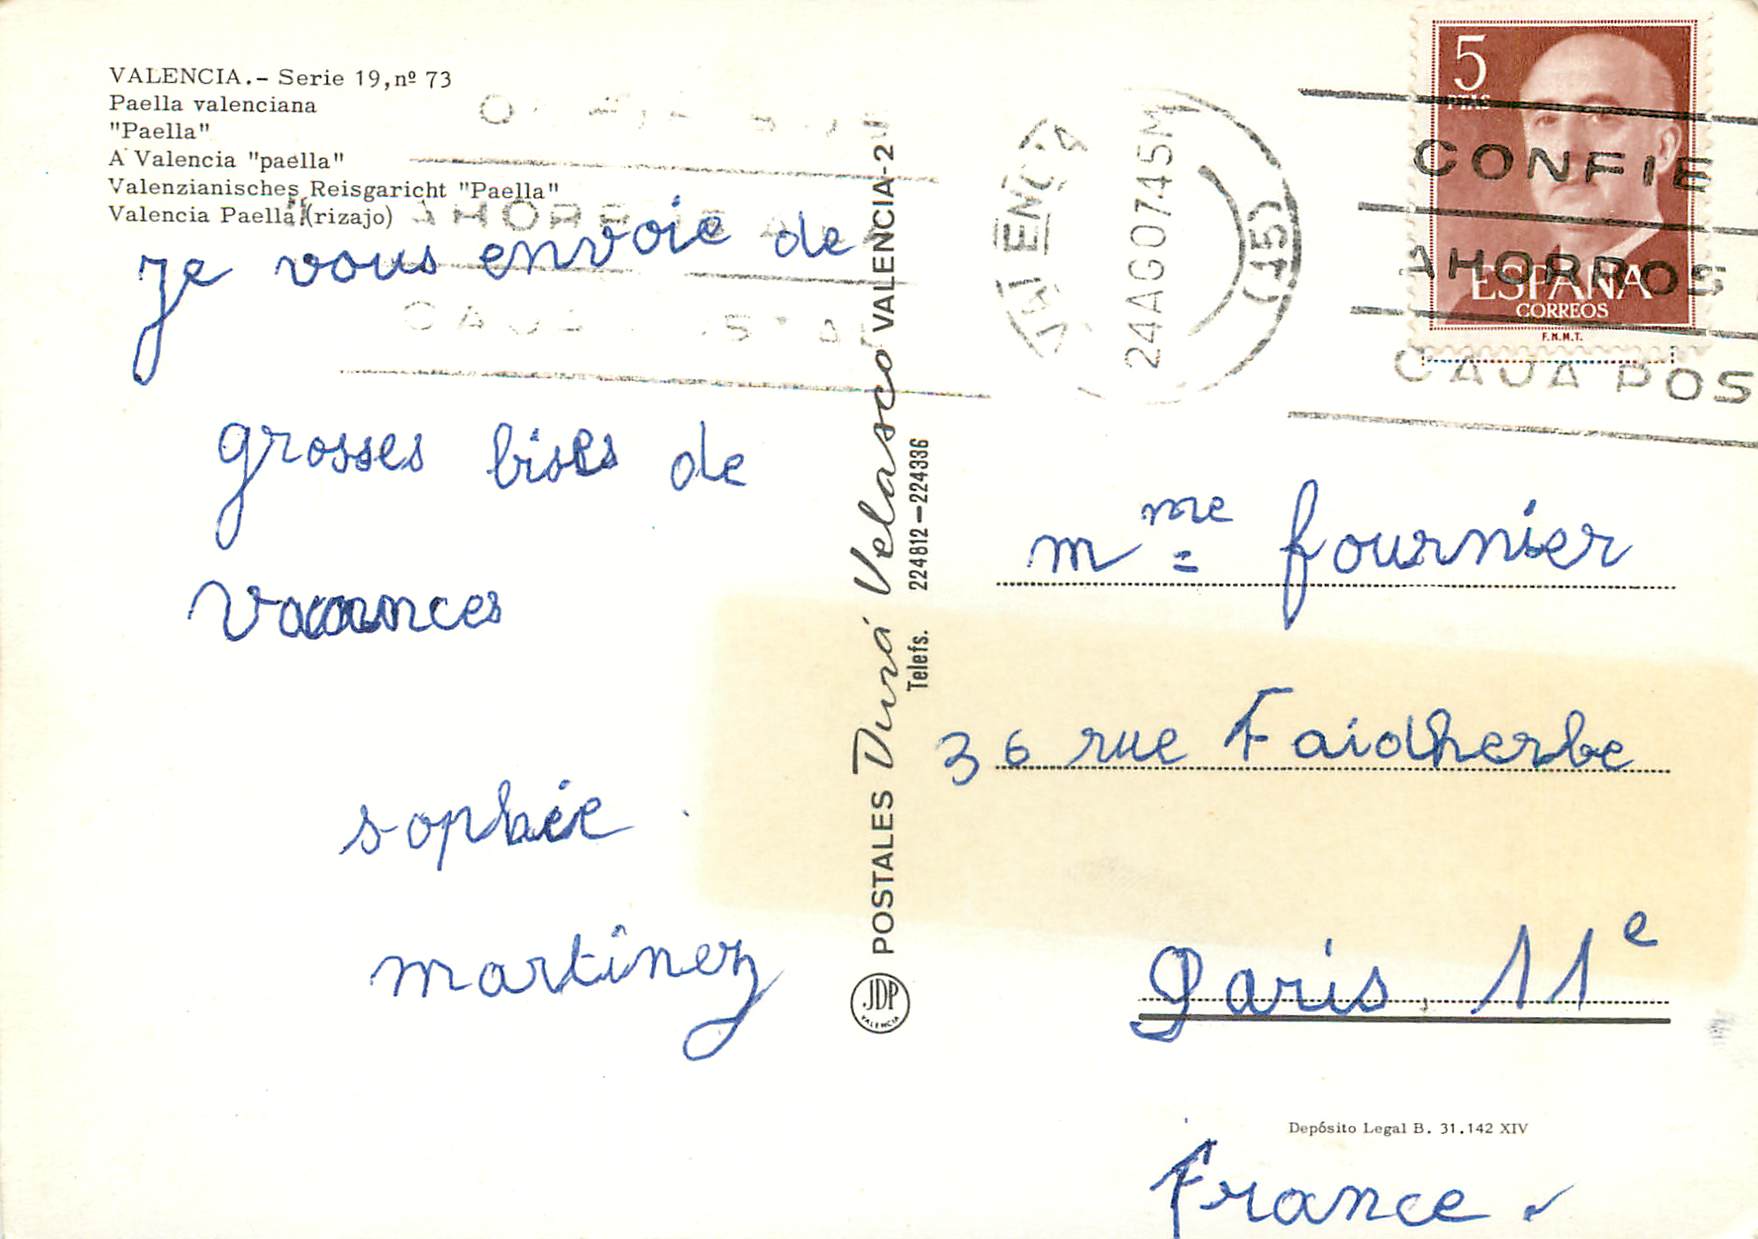 VALENCIA.- Serie 19,nº 73
Paella valenciana
"Paella"
A Valencia "paella"
Valenzianisches Reisgaricht "Paella"
Valencia Paella (rizajo)
je vous envoie de
grosses bises de
vacances
sophie
martinez
POSTALES Durá Velasco VALENCIA-2
Telefs. 224812-224336
JDP
VALENCIA
VALENCIA
24AGO 745M
(45)
5
PTAS
ESPAÑA
CORREOS
F.N.M.T.
CONFIE
AHORROS
CAJA POS
mme fournier
36 rue Faidherbe
Paris 11e
Depósito Legal B. 31.142 XIV
France